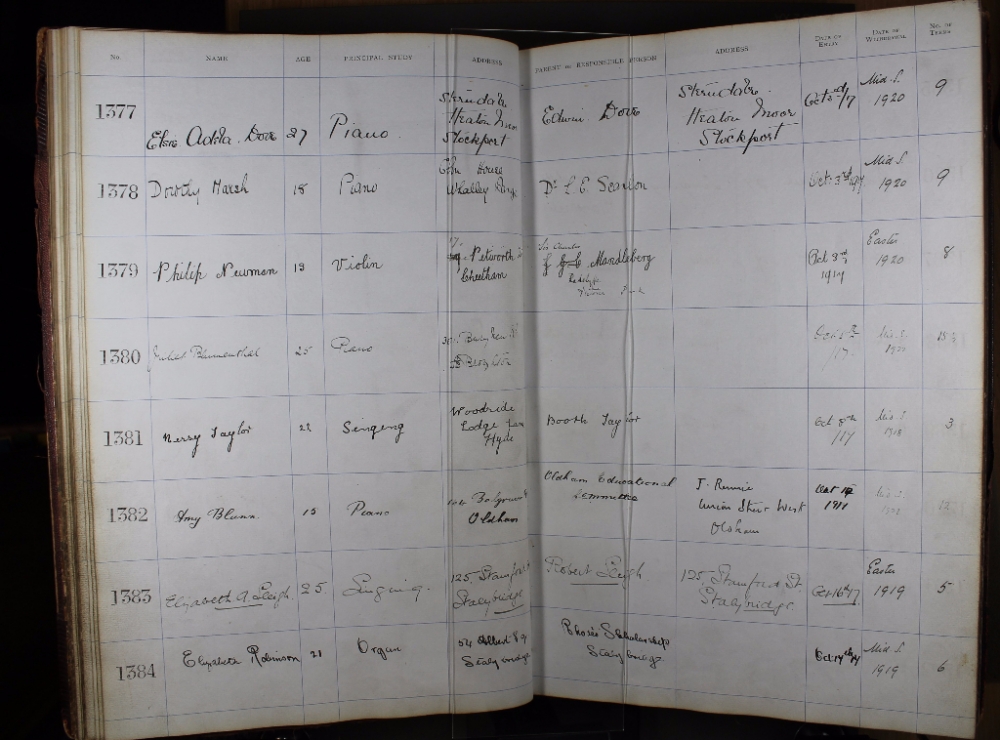 No. NAME AGE PRINCIPAL STUDY ADDRESS PARENT OR RESPONSIBLE PERSON ADDRESS DATE OF ENTRY DATE OF WITHDRAWAL NO. OF TERMS
1377 Elsie Adda Dove 27 Piano Heaton Moor Stockport Edwin Dove Heaton Moor Stockport Oct 2nd/17 Mid. S. 1920 9
1378 Dorothy Marsh 18 Piano House Whalley Dr. Scanlon Oct. 3rd Mid S. 1920 9
1379 Philip Newman 13 Violin 17. Petworth St Cheetham Sir Charles Mandleberg Oct 3rd 1917 Easter 1920 8
1380 Juliet Blumenthal 25 Piano /17. Mid S.
1381 Nessy Taylor 22 Singing Woodside Lodge Hyde Booth Taylor Oct 8th /17 Mid S. 1918 3
1382 Amy Blunn 15 Piano Oldham Oldham Educational Committee J. Rennie Union Street West Oldham Oct Mid S.
1383 Elizabeth A. Leigh 25 Singing. 125, Stamford St Stalybridge Robert Leigh 125, Stamford St. Stalybridge. Oct 16th/17 Easter 1919 5
1384 Elizabeth Robinson 21 Organ 54 Albert Sq Stalybridge Scholarship Stalybridge Oct 17th Mid S. 1919 6